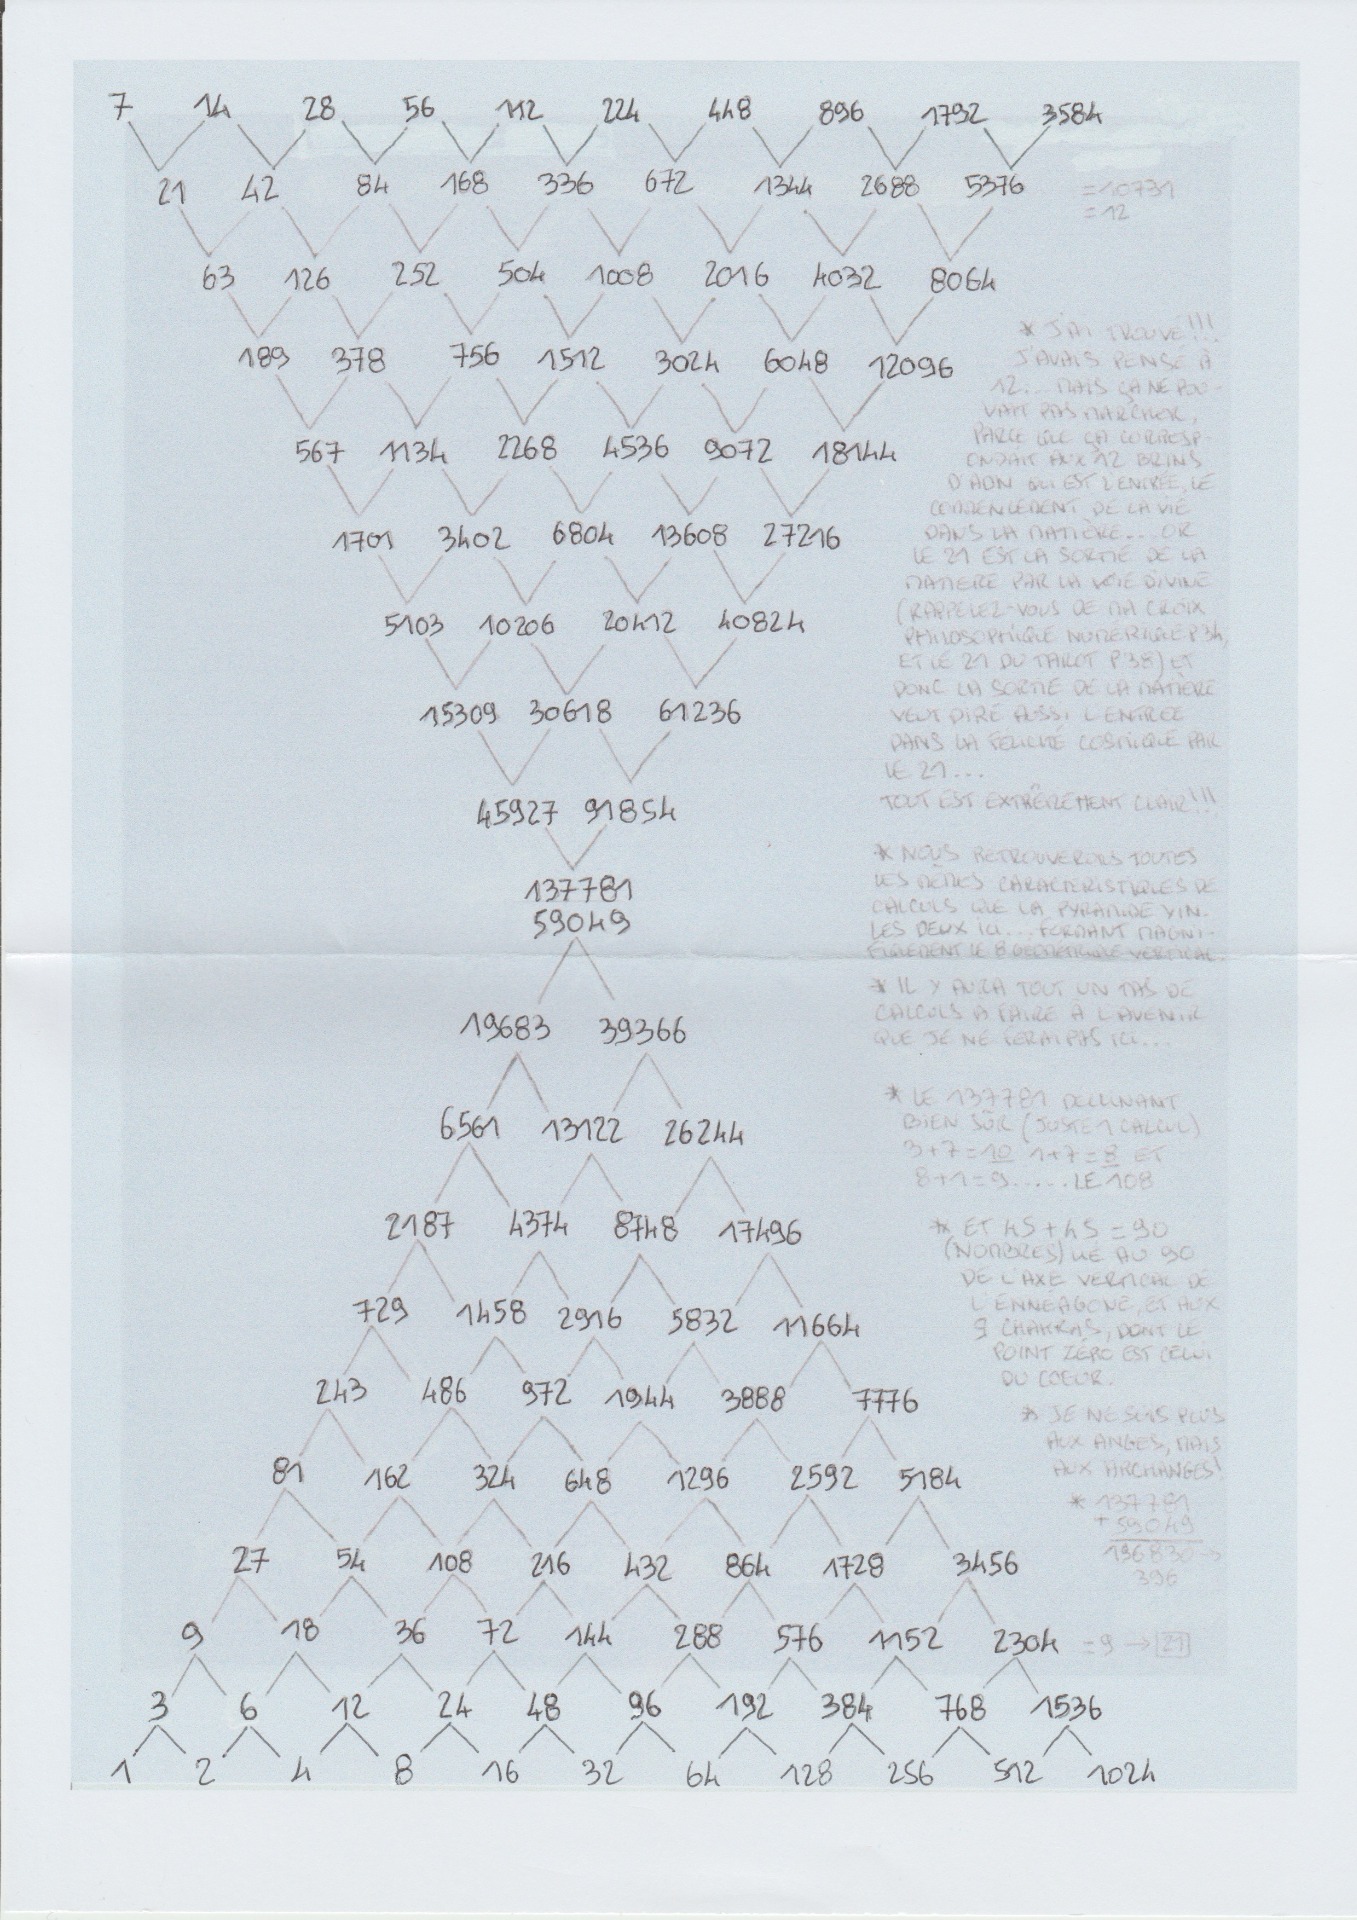 7 14 28 56 112 224 448 896 1792 3584
21 42 84 168 336 672 1344 2688 5376 =10731
=12
63 126 252 504 1008 2016 4032 8064
189 378 756 1512 3024 6048 12096
567 1134 2268 4536 9072 18144
1701 3402 6804 13608 27216
5103 10206 20412 40824
15309 30618 61236
45927 91854
137781
59049
19683 39366
6561 13122 26244
2187 4374 8748 17496
729 1458 2916 5832 11664
243 486 972 1944 3888 7776
81 162 324 648 1296 2592 5184
27 54 108 216 432 864 1728 3456
9 18 36 72 144 288 576 1152 2304 =9 → 21
3 6 12 24 48 96 192 384 768 1536
1 2 4 8 16 32 64 128 256 512 1024
* J'AI TROUVÉ!!!
J'AVAIS PENSÉ À
12... MAIS ÇA NE POU-
VAIT PAS MARCHER,
PARCE QUE ÇA CORRESP-
ONDAIT AUX 12 BRINS
D'ADN QUI EST L'ENTRÉE, LE
COMMENCEMENT DE LA VIE
DANS LA MATIÈRE... OR
LE 21 EST LA SORTIE DE LA
MATIERE PAR LA VOIE DIVINE
(RAPPELEZ-VOUS DE MA CROIX
PHILOSOPHIQUE NUMÉRIQUE P34,
ET LE 21 DU TAROT P38) ET
DONC LA SORTIE DE LA MATIÈRE
VEUT DIRE AUSSI L'ENTRÉE
DANS LA FÉLICITÉ COSMIQUE PAR
LE 21...
TOUT EST EXTRÊMEMENT CLAIR!!!
* NOUS RETROUVERONS TOUTES
LES MÊMES CARACTERISTIQUES DE
CALCULS QUE LA PYRAMIDE YIN.
LES DEUX ICI... FORMANT MAGNI-
FIQUEMENT LE 8 GEOMETRIQUE VERTICAL.
* IL Y AURA TOUT UN TAS DE
CALCULS À FAIRE À L'AVENIR
QUE JE NE FERAI PAS ICI...
* LE 137781 DECLINANT
BIEN SÛR (JUSTE 1 CALCUL)
3+7=10 1+7=8 ET
8+1=9..... LE 108
* ET 45+45=90
(NOMBRES) LIÉ AU 90
DE L'AXE VERTICAL DE
L'ENNÉAGONE, ET AUX
9 CHAKRAS, DONT LE
POINT ZÉRO EST CELUI
DU COEUR.
* JE NE SUIS PLUS
AUX ANGES, MAIS
AUX ARCHANGES!
* 137781
+ 59049
196830 →
396